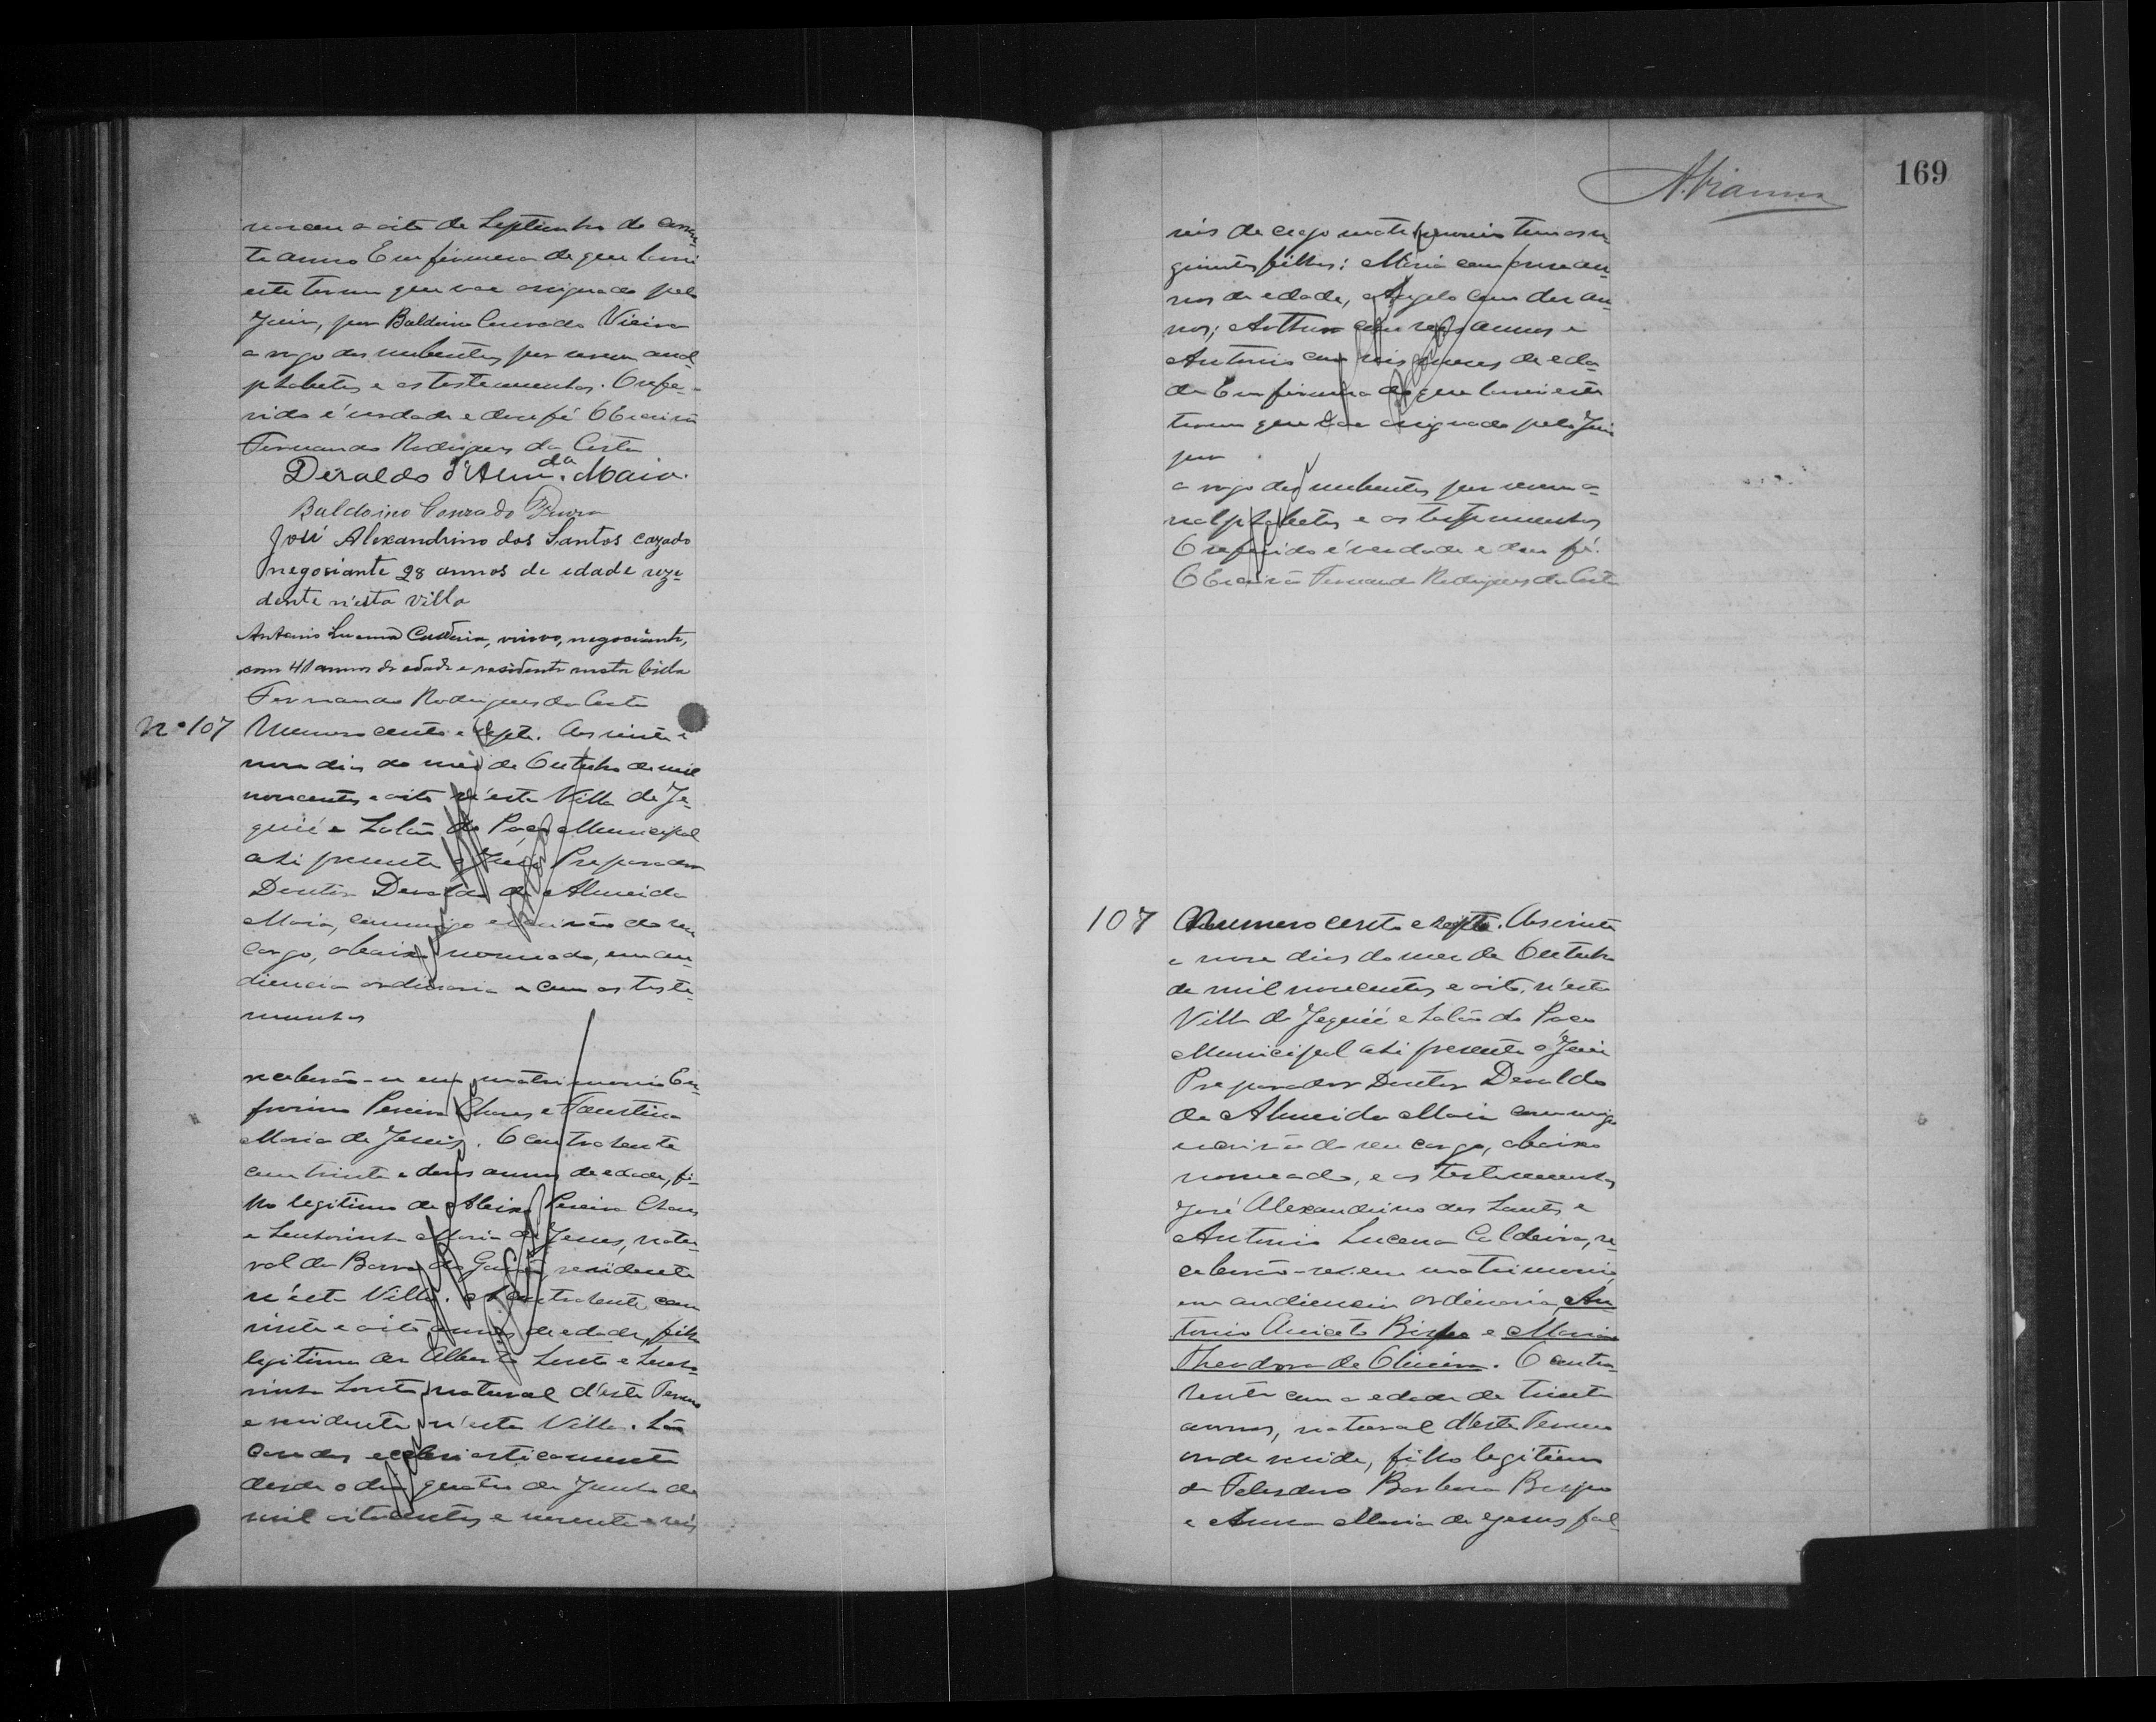 nasceu a oito de Septembro do corren-
te anno E em firmeza de que lavrei
este termo que vae assignado pelo
Juiz, por Baldoino Conrado Vieira
a rogo dos nubentes por serem anal-
phabetos e as testemunhas. O refe-
rido é verdade e dou fé O Escrivão
Fernando Rodrigues da Costa
Deraldo d'Alm.da Maia.
Baldoino Conrado Vieira
José Alexandrino dos Santos cazado
negosiante 28 annos de edade rezi-
dente n'esta villa
Antonio Lucena Caldeira, viuvo, negociante,
com 41 annos de edade e residente nesta Villa
Fernando Rodrigues da Costa
Nº 107
Numero cento e septe. Aos vinte e
nove dias do mês de Outubro de mil
novecentos e oito n'esta Villa de Je-
quié e Salão do Paço Municipal
ahi presente o Juiz Preparador
Doutor Deraldo de Almeida
Maia, commigo escrivão do seu
cargo, abaixo nomeado, em au-
diencia ordinaria e com as teste-
munhas
receberão-se em matrimonio
Pereira Chaves e Faustina
Maria de Jesus. O contrahente
com trinta e dous annos de edade, fi-
lho legitimo de Aleixo Pereira Chaves
e Senhorinha Maria de Jesus, natu-
ral da Barra da residente
n'esta Villa. A contrahente com
vinte e oito annos de edade, filha
legitima de Alberto e Senho-
rinha natural d'este Termo
e residente n'esta Villa. São
casados ecclesiasticamente
desde o dia quatro de Junho de
mil oitocentos e noventa e seis
169
reis de cujo matrimonio tem os se-
guintes filhos: Maria com onze an-
nos de edade, Angelo com dez an-
nos; Arthur com seis annos e
Antonio com seis mezes de eda-
de E em firmeza de que lavrei este
termo que vae assignado pelo Juiz
por
a rogo dos nubentes por serem a-
nalphabetos e as testemunhas
O referido é verdade e dou fé.
O Escrivão Fernando Rodrigues da Costa
107
Numero cento e septe. Aos vinte
e nove dias do mez de Outubro
de mil novecentos e oito, n'esta
Villa de Jequié e Salão do Paço
Municipal ahi presente o Juiz
Preparador Doutor Deraldo
de Almeida Maia commigo
escrivão do seu cargo, abaixo
nomeado, e as testemunhas
José Alexandrino dos Santos e
Antonio Lucena Caldeira, re-
ceberão-se em matrimonio,
em audiencia ordinaria, An-
tonio Aniceto Bispo e Maria
Theodora de Oliveira. O contra-
hente com a edade de trinta
annos, natural d'este Termo
onde reside, filho legitimo
de Barbosa Bispo
e Anna Maria de Jesus fal-